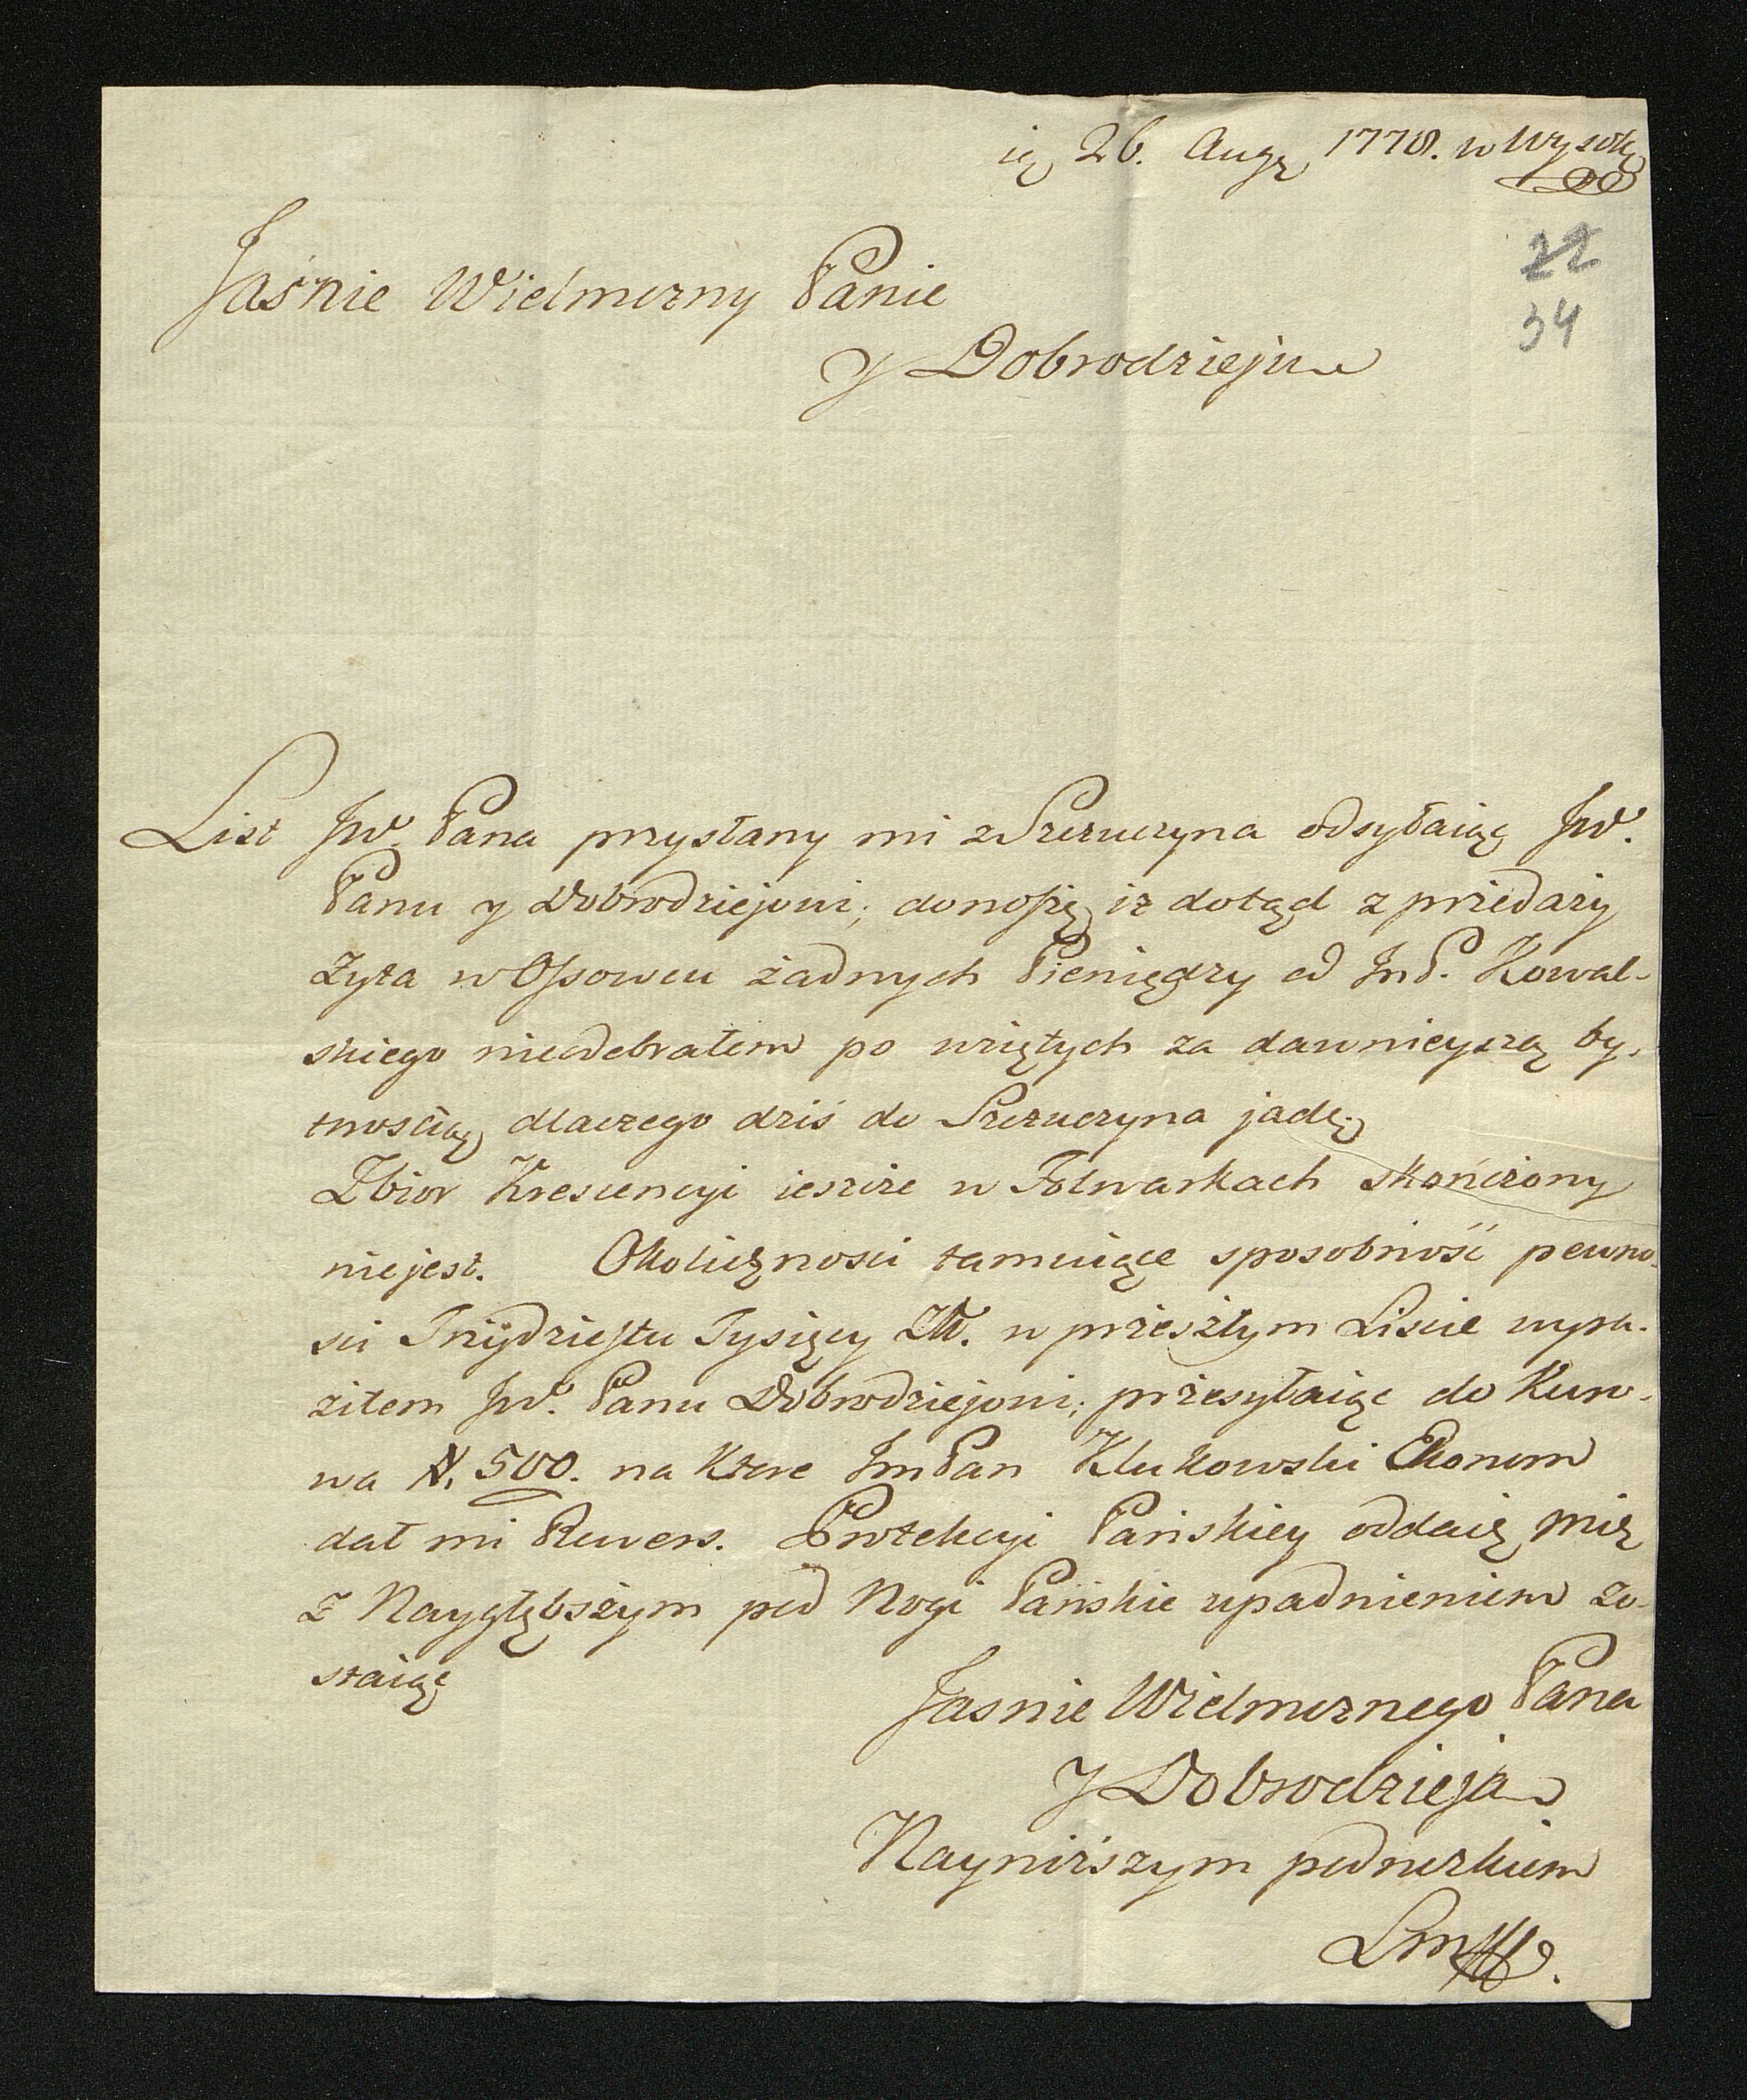 26. Augą 1778. w Wysoky
22
34
Jaśnie Wielmozny Panie
y Dobrodzieju
List Jw. Pana przysłany mi z Szczuczyna odsyłaiąc Jw.
Panu y Dobrodziejowi; donoszę iż dotąd z przedaży
Zyta w Ossowcu żadnych Pieniędzy od JmP. Kowal-
skiego nieodebrałem po wziętych za dawnieyszą by-
tnością dlaczego dziś do Szczuczyna jadę.
Zbior Krescencyi ieszcze w Folwarkach skończony
nie jest. Okoliczności tamuiące sposobność pewno-
sci Trzydziestu Tysięcy Zł. w przeszłym Liscie wyra-
ziłem Jw. Panu Dobrodziejowi; przesyłaiąc do Kuro-
wa N. 500. na ktore ImPan Klukowski Ekonom
dał mi Rewers. Protekcyi Pańskiey oddaię mię
z Naygłębszym pod Nogi Pańskie upadnieniem zo-
staiąc
Jasnie Wielmoznego Pana
y Dobrodzieja
Nayniższym podnozkiem